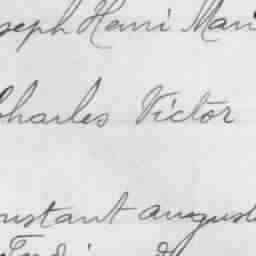 seph Henri Mari
Charles Victor
nstant auguste